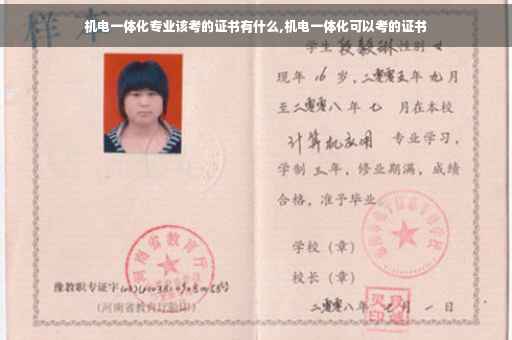 机电一体化专业该考的证书有什么,机电一体化可以考的证书
样本
学生段毅琳性别女
现年16岁,二零零五年九月
至二零零八年七月在本校
计算机应用 专业学习,
学制三年,修业期满,成绩
合格,准予毕业
学校(章)
校长(章)
河南省教育厅
豫教职专证字
(河南省教育厅验印)
二零零八年七月一日